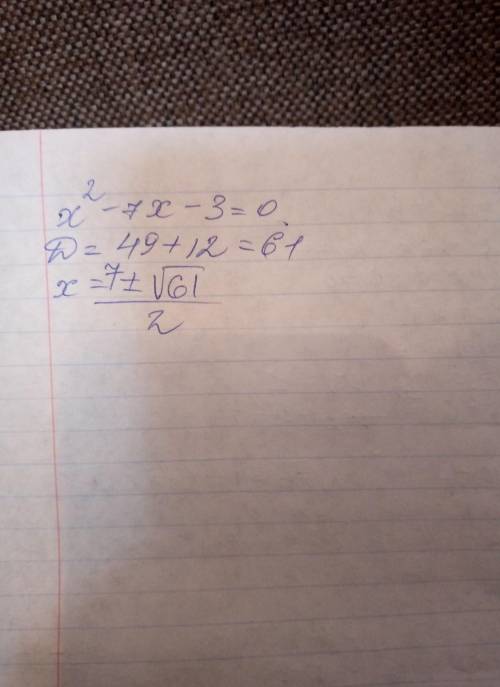 x² - 7x - 3 = 0.
Д = 49 + 12 = 61
x = 7 ± √61 / 2